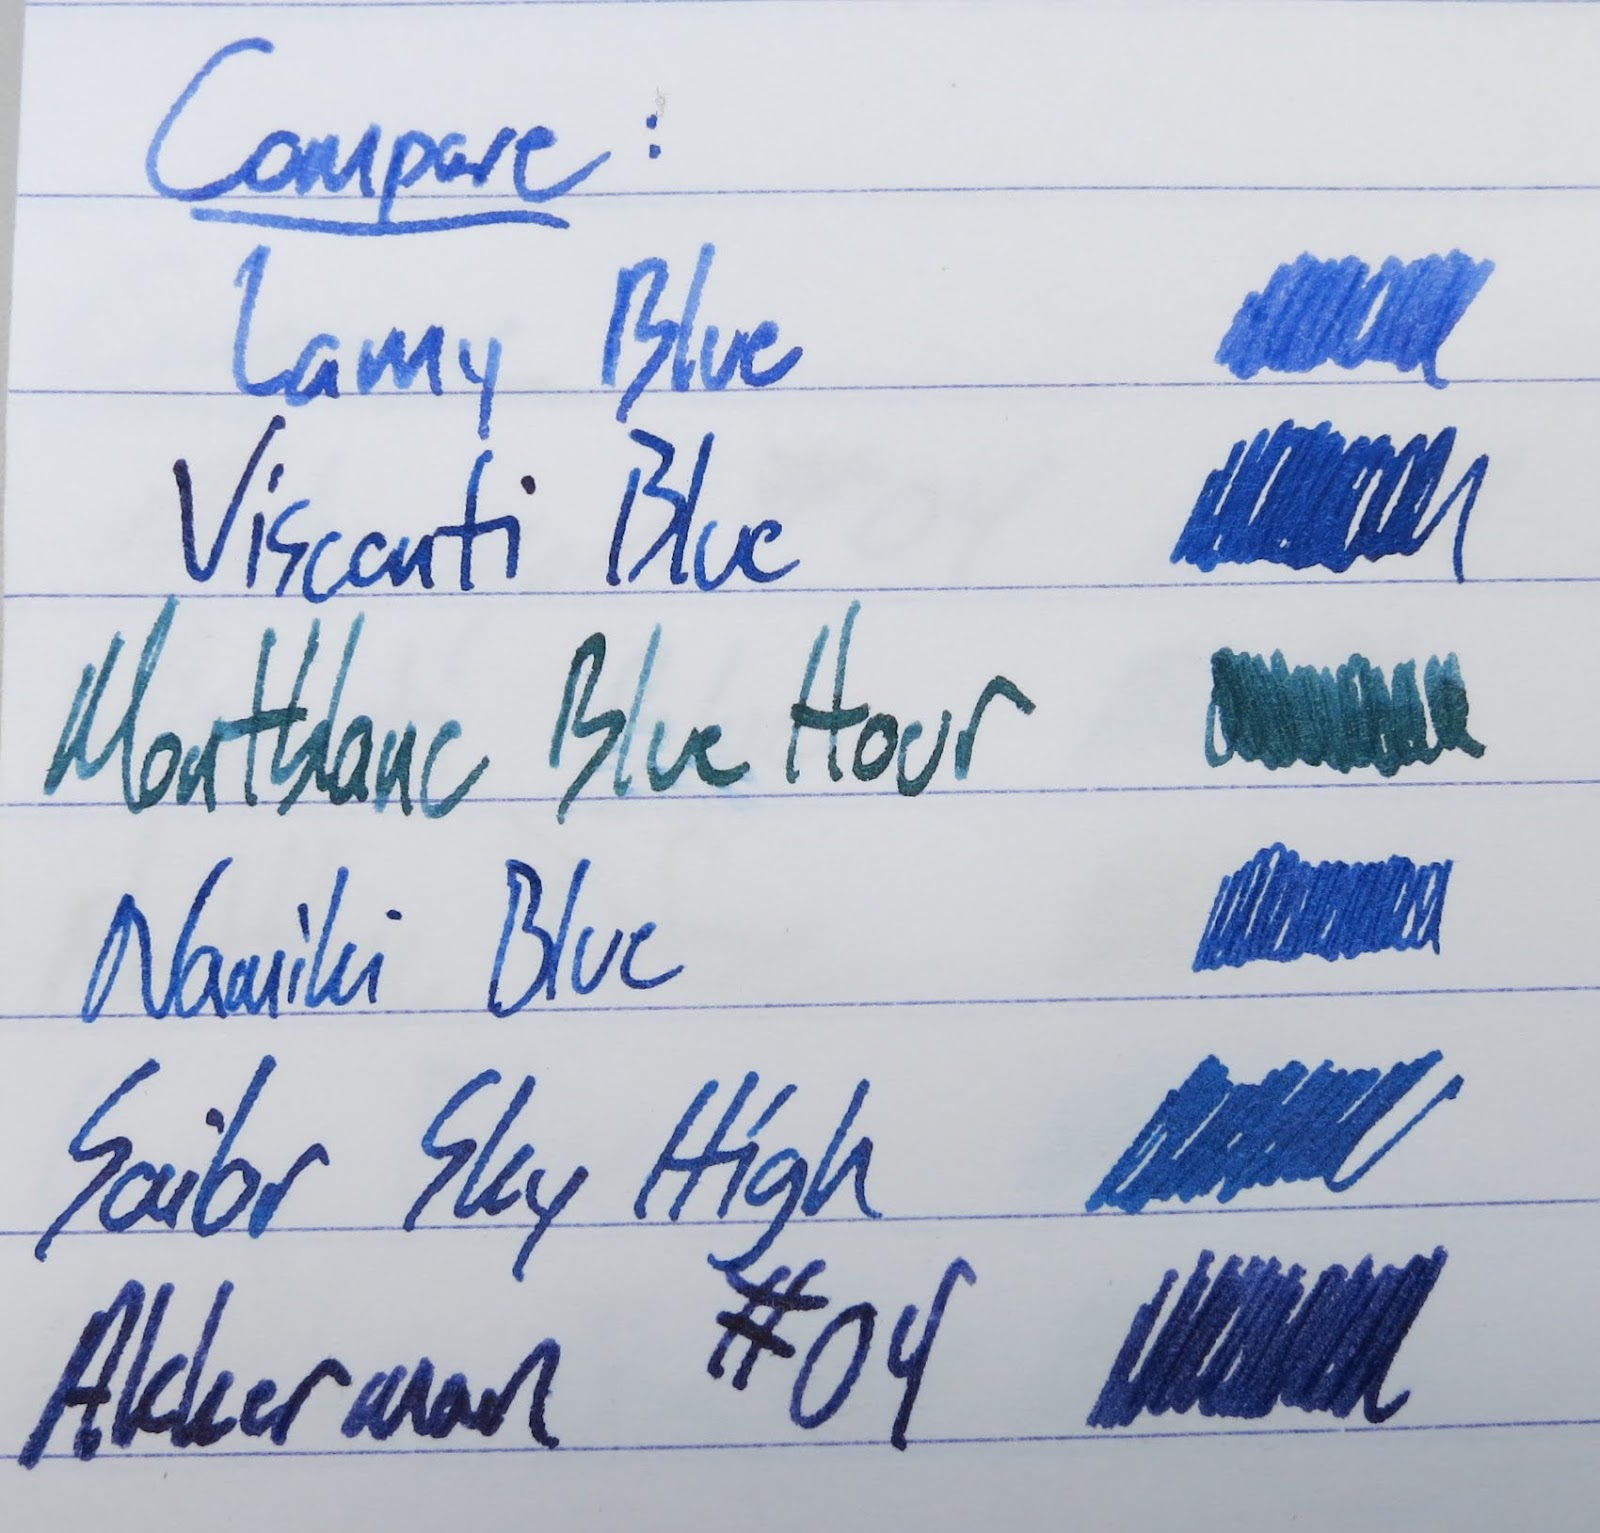 Compare:
Lamy Blue
Visconti Blue
Montblanc Blue Hour
Namiki Blue
Sailor Sky High
Akkerman #04